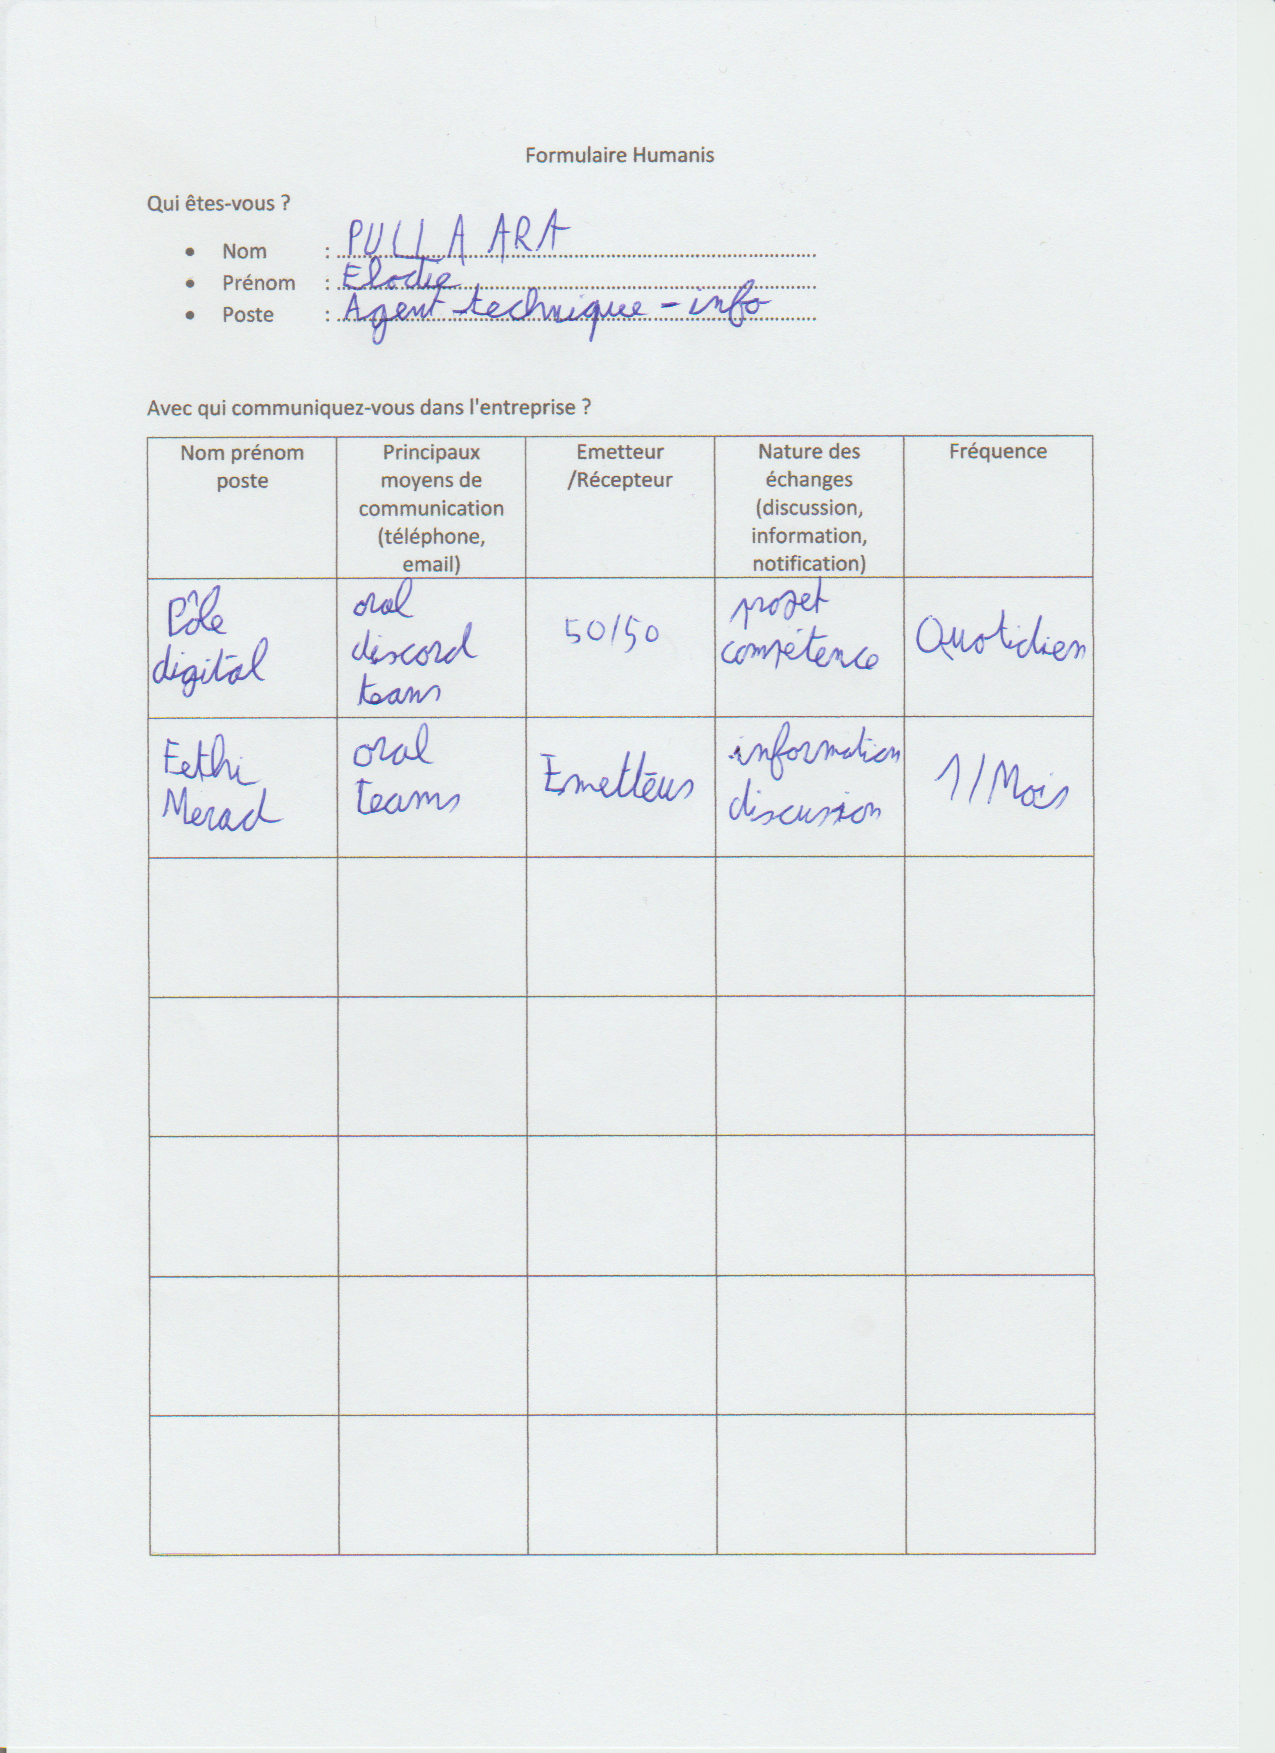 Formulaire Humanis
Qui êtes-vous ?
• Nom : PULLARA
• Prénom : Elodie
• Poste : Agent technique - info
Avec qui communiquez-vous dans l'entreprise ?
Nom prénom
poste
Principaux
moyens de
communication
(téléphone,
email)
Emetteur
/Récepteur
Nature des
échanges
(discussion,
information,
notification)
Fréquence
Pôle
digital
oral
discord
teams
50/50
projet
compétence
Quotidien
Fethi
Merad
oral
teams
Emetteur
information
discussion
1/Mois